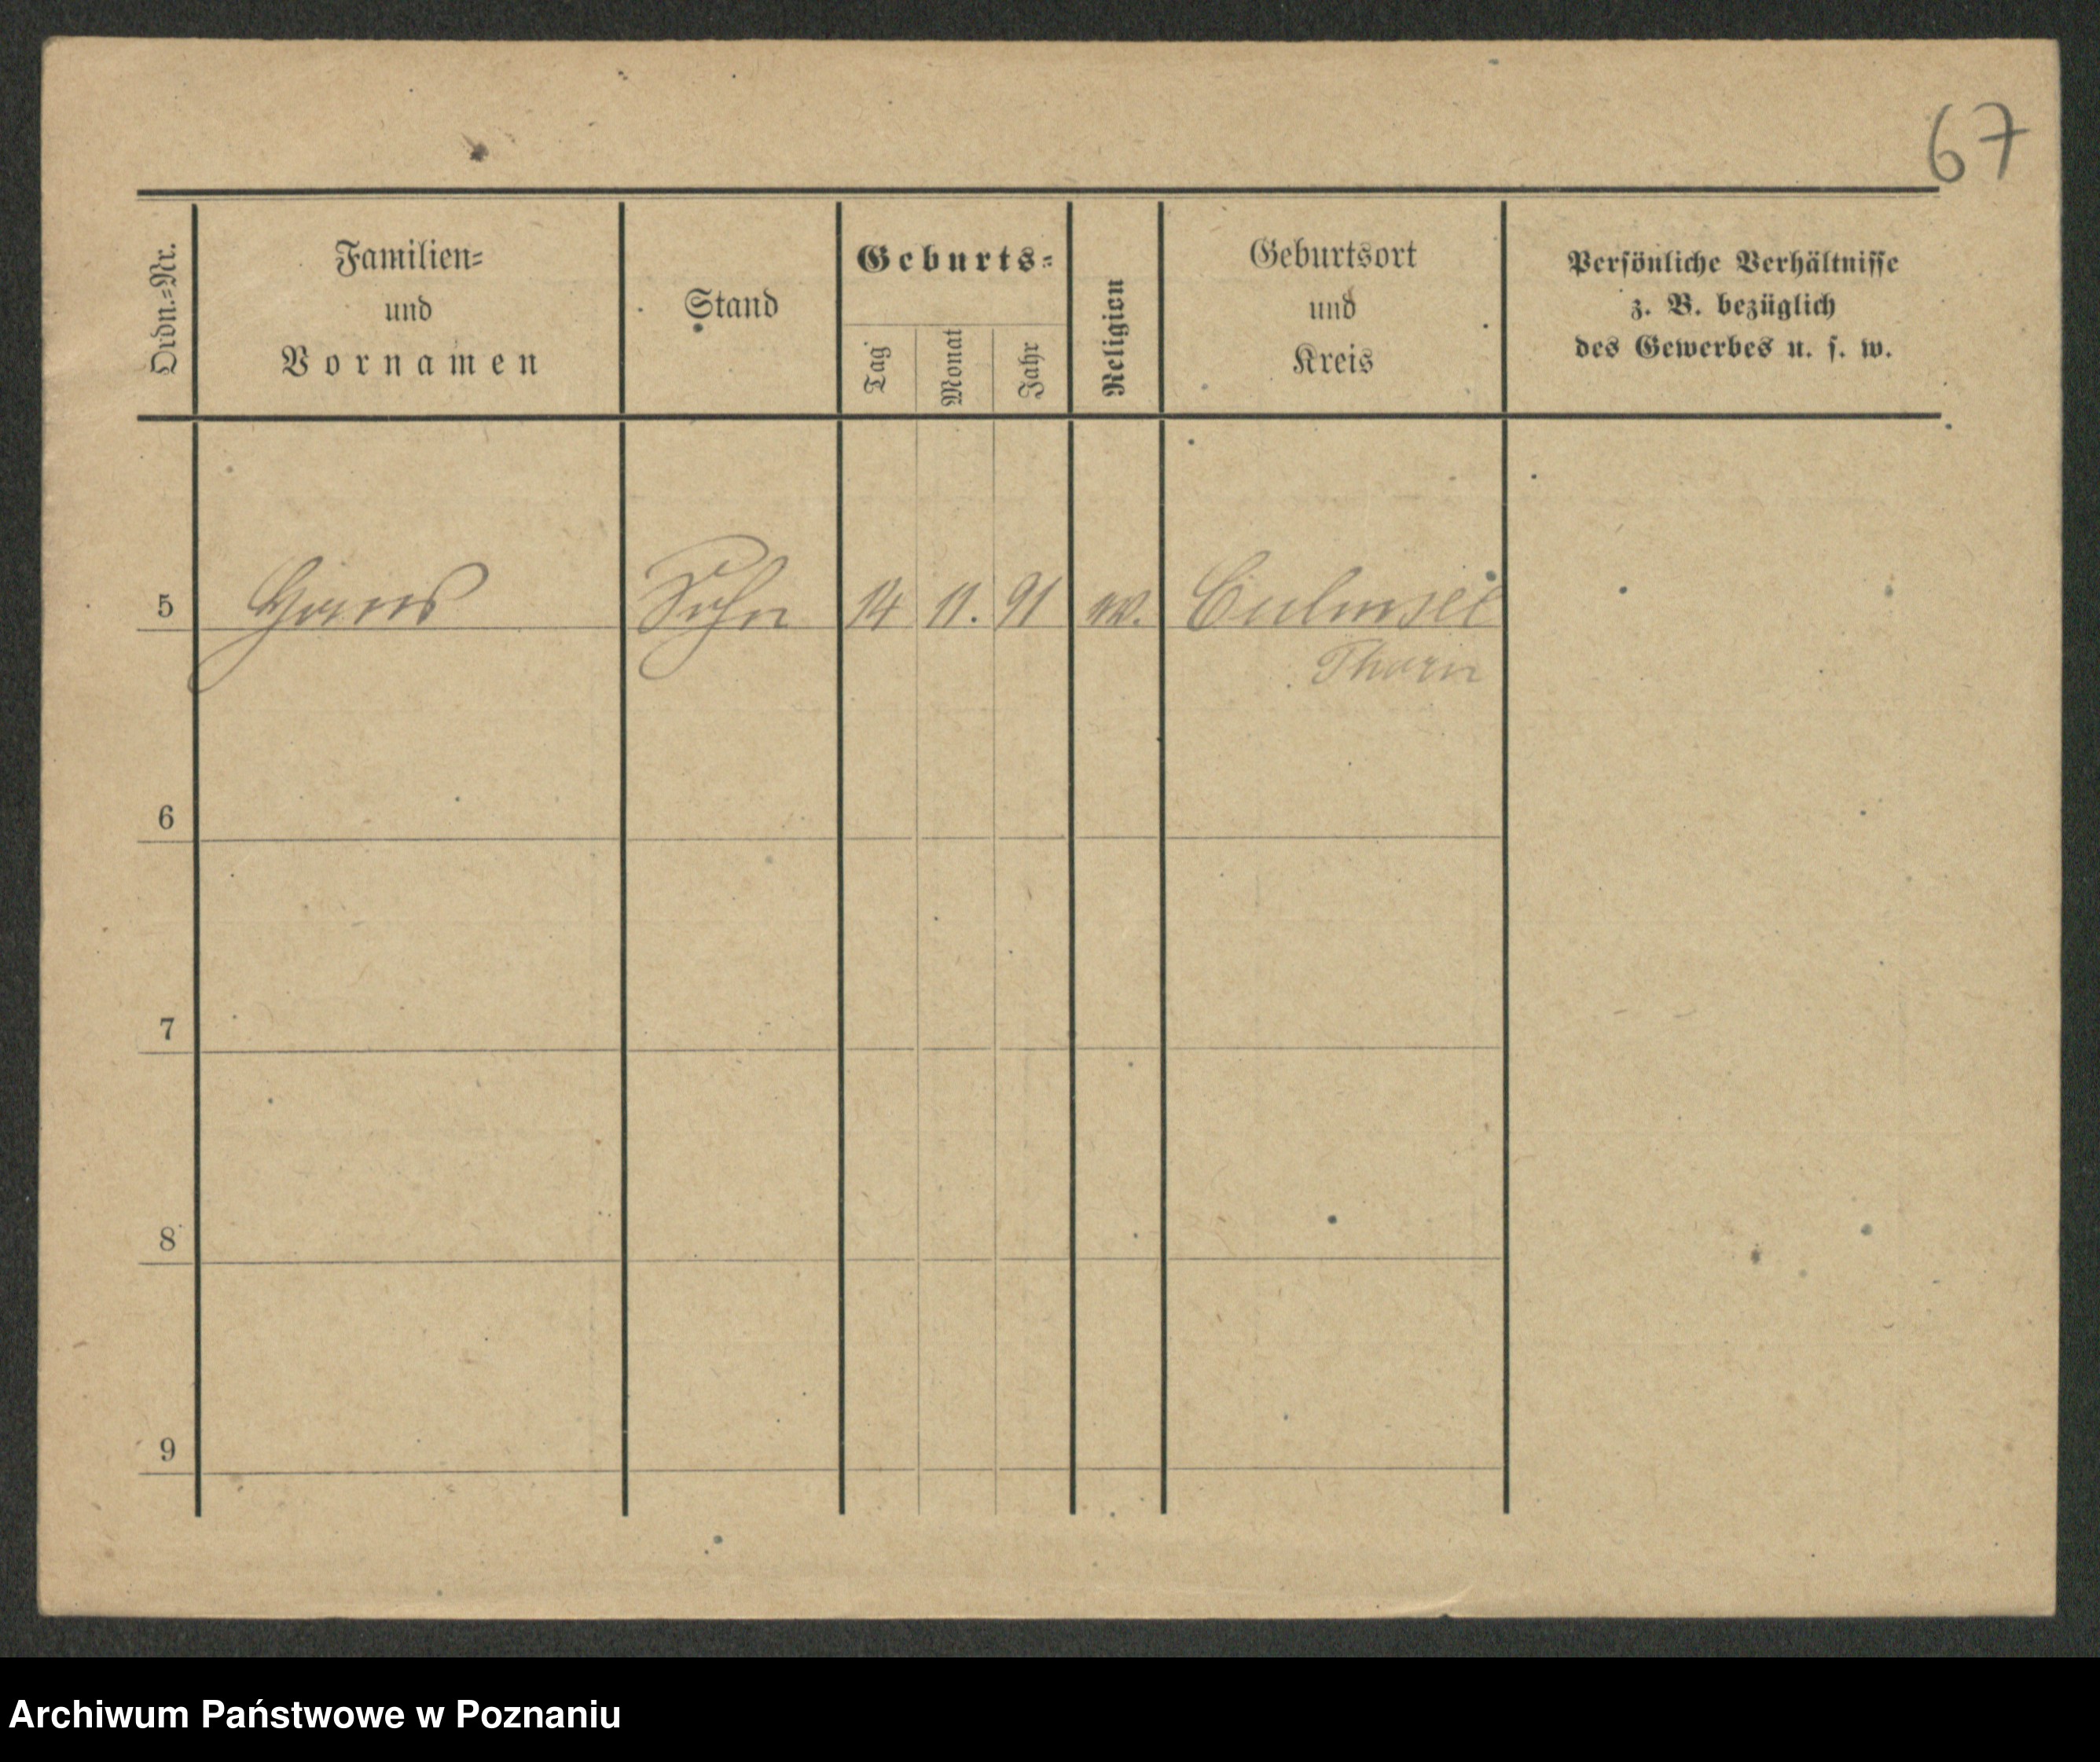 67
Ordn.=Nr.
Familien=
und
Vornamen
Stand
Geburts=
Tag
Monat
Jahr
Religion
Geburtsort
und
Kreis
Persönliche Verhältnisse
z. B. bezüglich
des Gewerbes u. s. w.
5 Hans Sohn 14 11. 91 Culmsee
Thorn
6
7
8
9
Archiwum Państwowe w Poznaniu